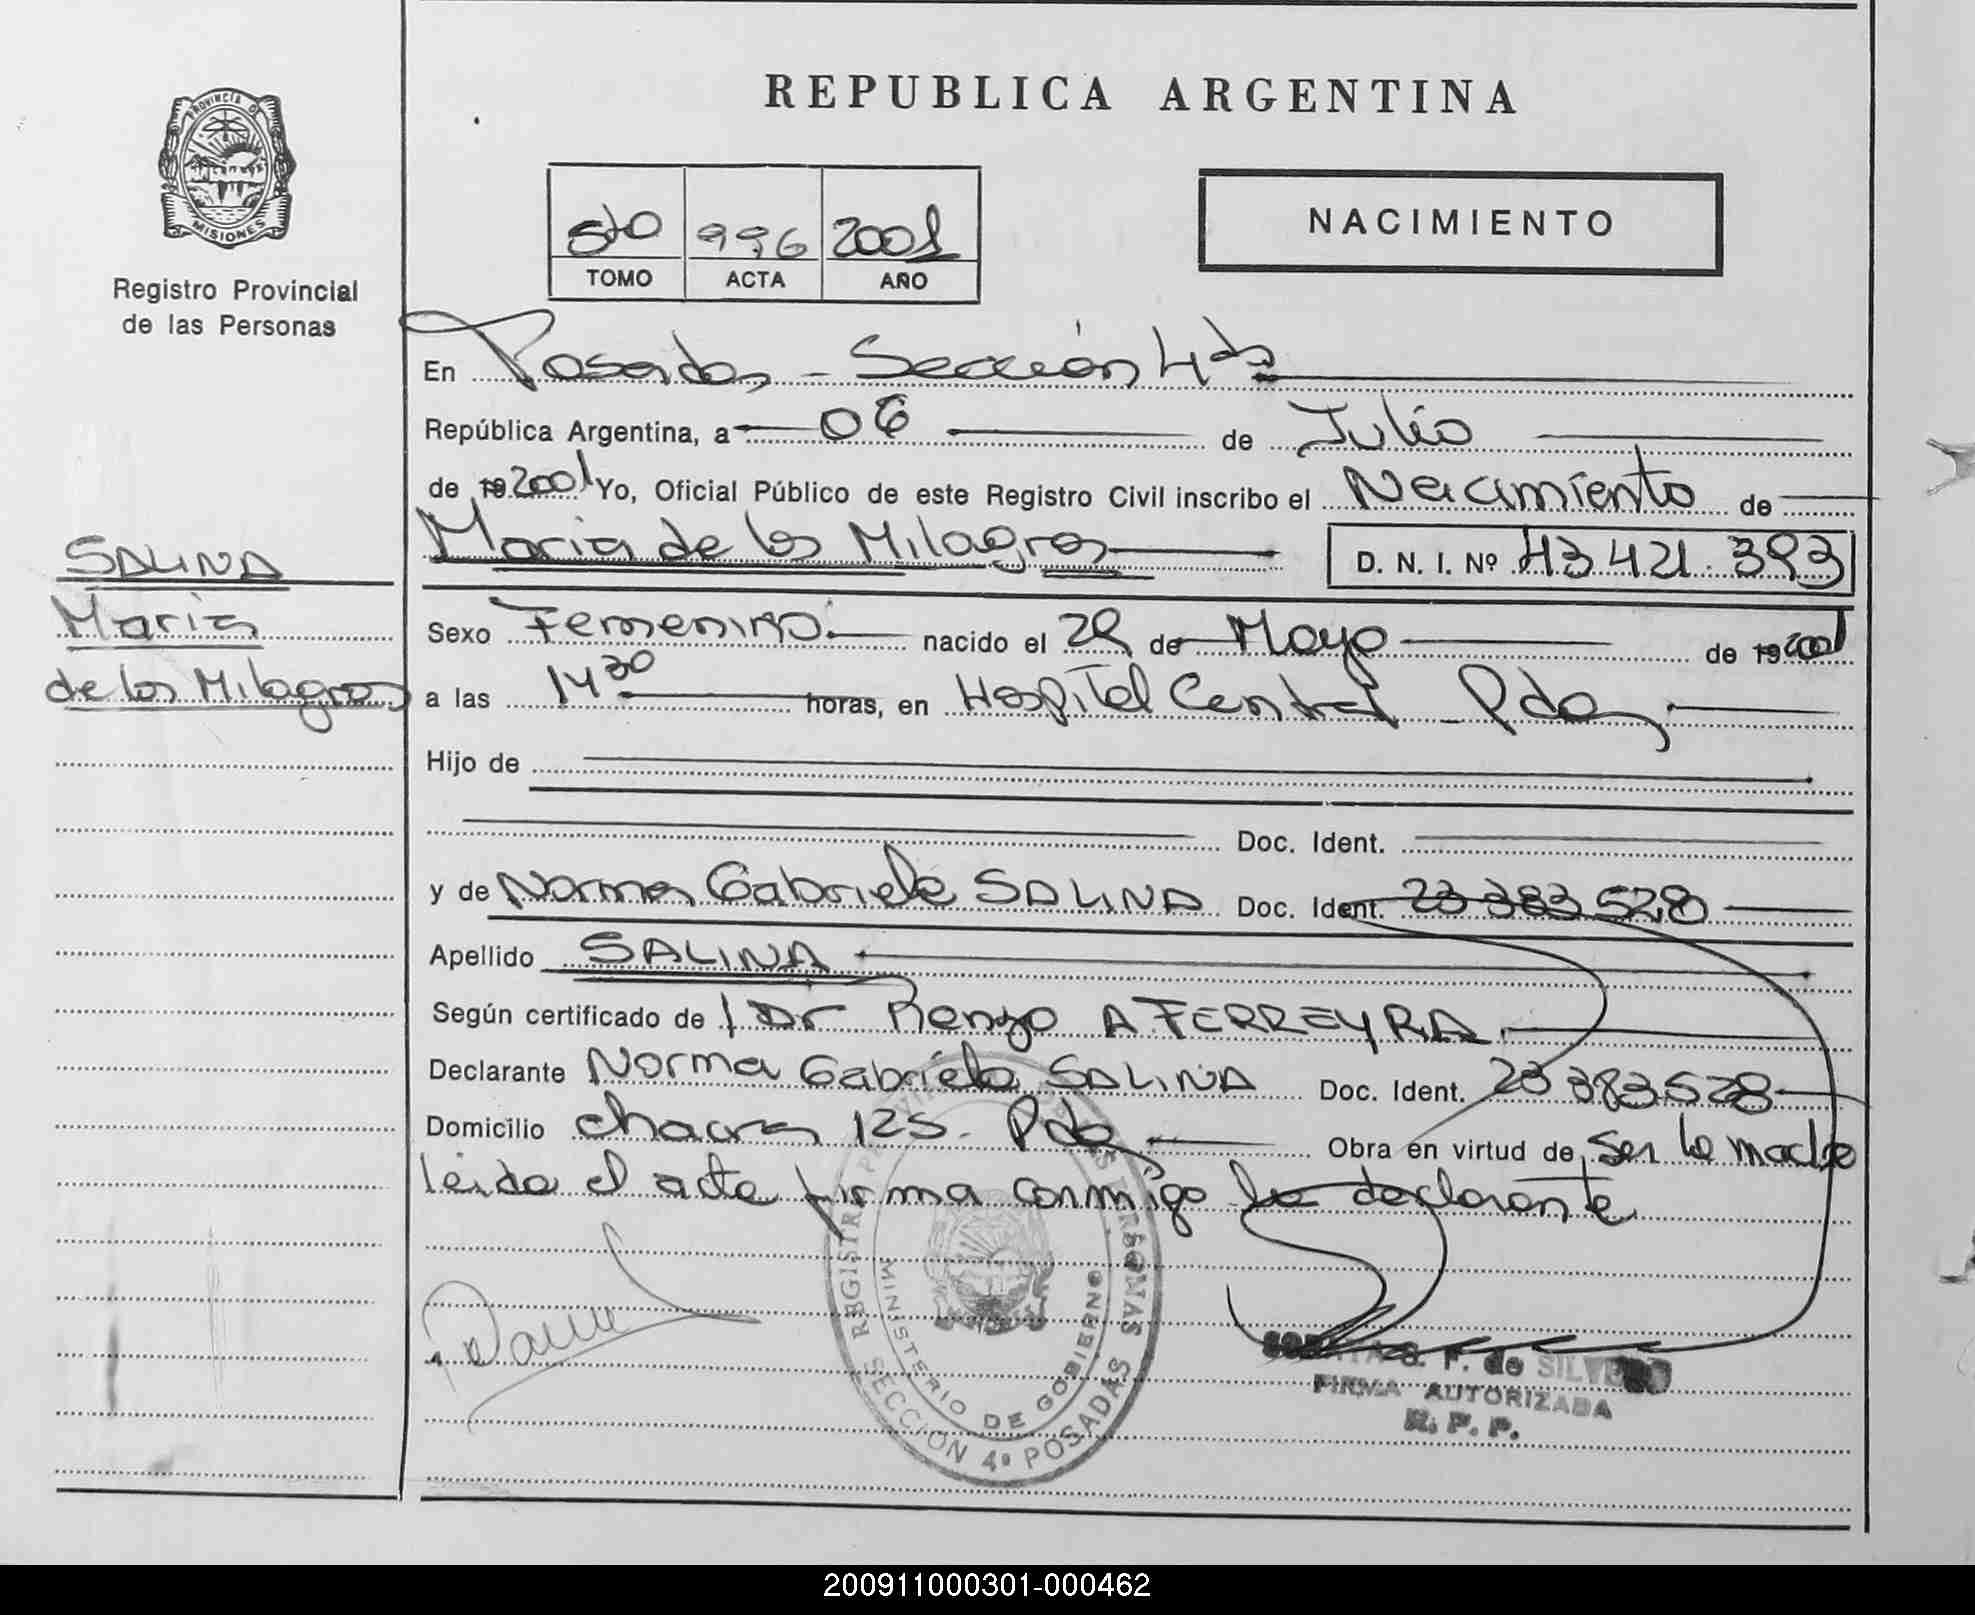 REPUBLICA ARGENTINA
PROVINCIA DE
MISIONES
Registro Provincial
de las Personas
5to 996 2001
TOMO ACTA AÑO
NACIMIENTO
En Posadas - Sección 4ta
República Argentina, a 06 de Julio
de 19 2001 Yo, Oficial Público de este Registro Civil inscribo el Nacimiento de
Maria de los Milagros D. N. I. Nº 43.421.393
SALINA
Maria
de los Milagros
Sexo Femenino nacido el de Mayo de 19 2001
a las 14 30 horas, en Hospital Central Pdas
Hijo de
Doc. Ident.
y de Norma Gabriela SALINA Doc. Ident. 23 383 528
Apellido SALINA
Según certificado de Dr Renzo A FERREYRA
Declarante Norma Gabriela SALINA Doc. Ident. 23 383.528
Domicilio chacra 125. Pdas Obra en virtud de ser la madre
leida el acta firma conmigo la declarante
MINISTERIO DE GOBIERNO
SECCION 4º POSADAS
S. F. de
FIRMA AUTORIZADA
R. P. P.
200911000301-000462